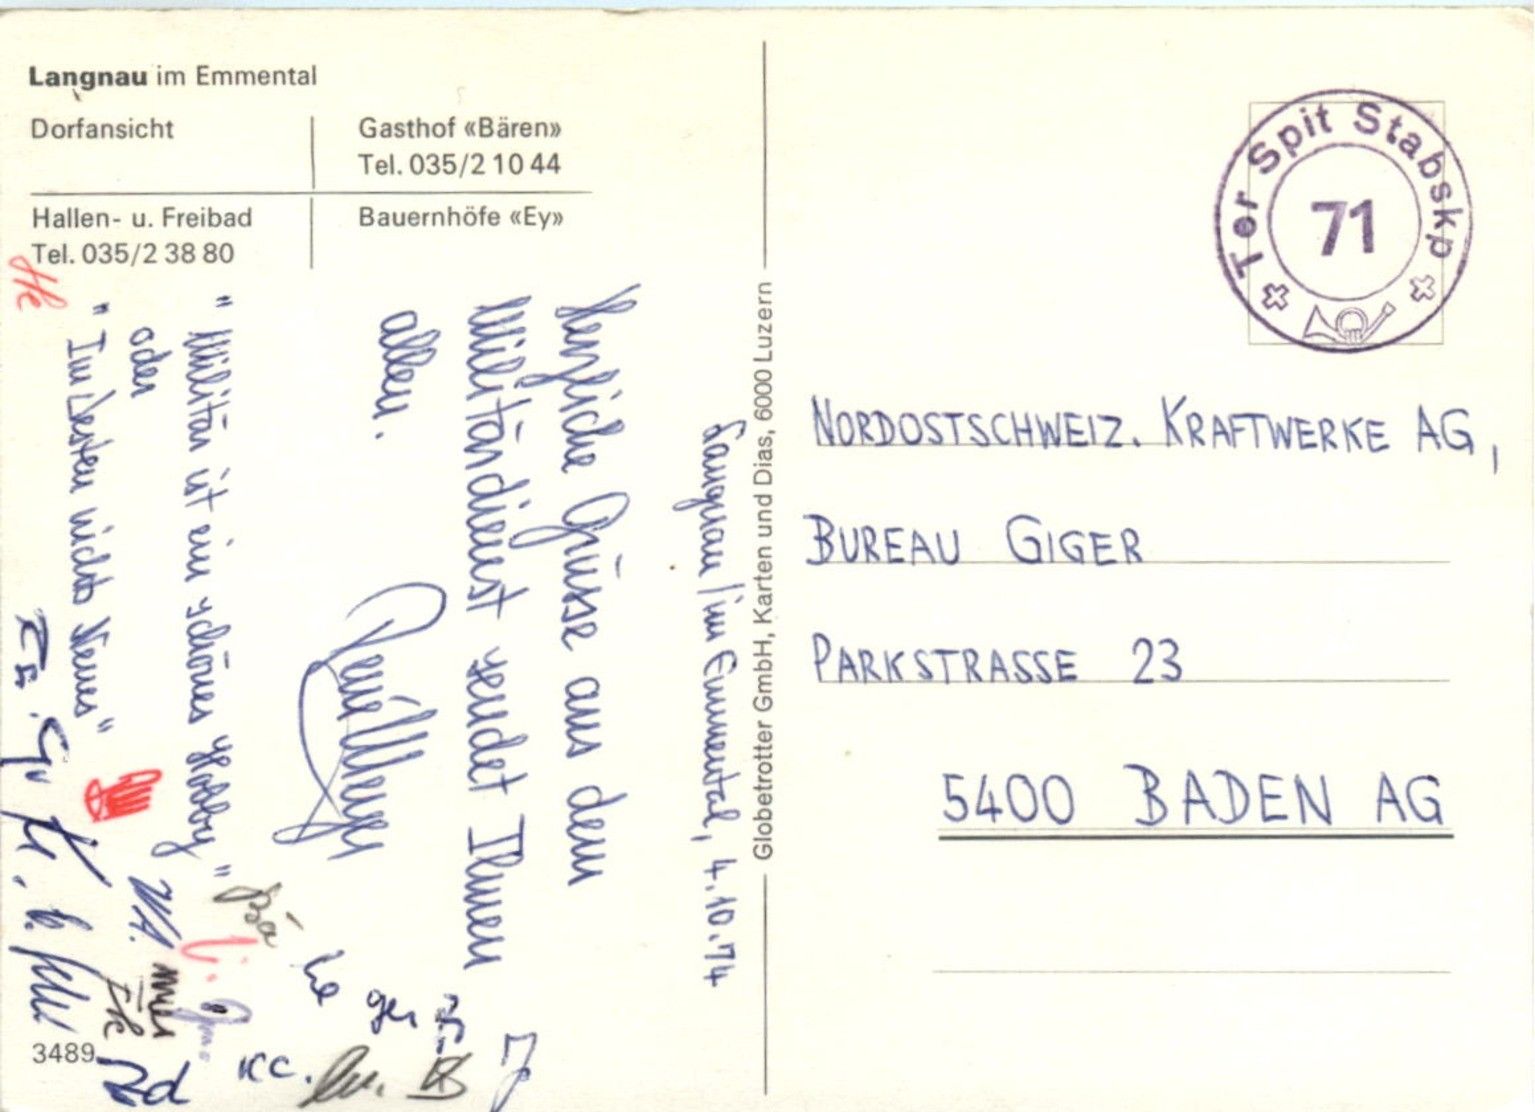 Langnau im Emmental
Dorfansicht
Gasthof «Bären»
Tel. 035/2 10 44
Hallen- u. Freibad
Tel. 035/2 38 80
Bauernhöfe «Ey»
Langnau/im Emmental, 4.10.74
Herzliche Grüsse aus dem
Militärdienst sendet Ihnen
allen.
" Militär ist ein schönes Hobby "
oder
" Im Westen nichts Neues "
3489
Globetrotter GmbH, Karten und Dias, 6000 Luzern
Ter Spit Stabskp
71
NORDOSTSCHWEIZ. KRAFTWERKE AG,
BUREAU GIGER
PARKSTRASSE 23
5400 BADEN AG